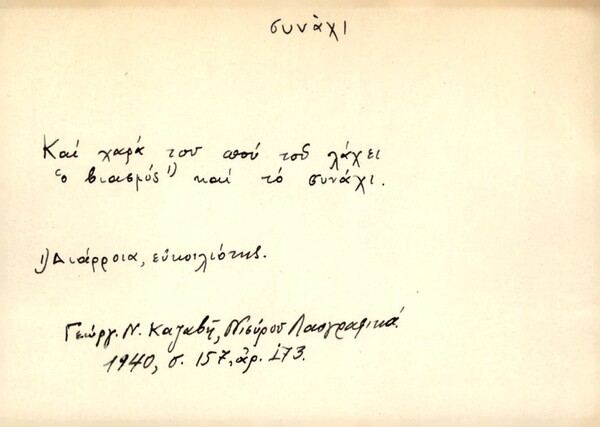 συνάχι
Καί χαρά του απού τοῦ λάχει
ὁ βιασμός 1) καί τό συνάχι.
1) Διάρροια, εὐκοιλιότης.
Γεώργ. Ν. Καζαβῆ, Νισύρου Λαογραφικά.
1940, σ. 157, ἀρ. 173.